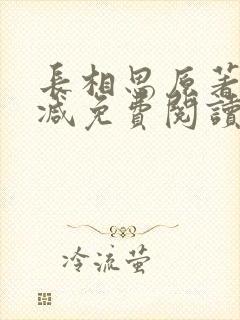 長相思原著
減免費閱讀
冷流螢